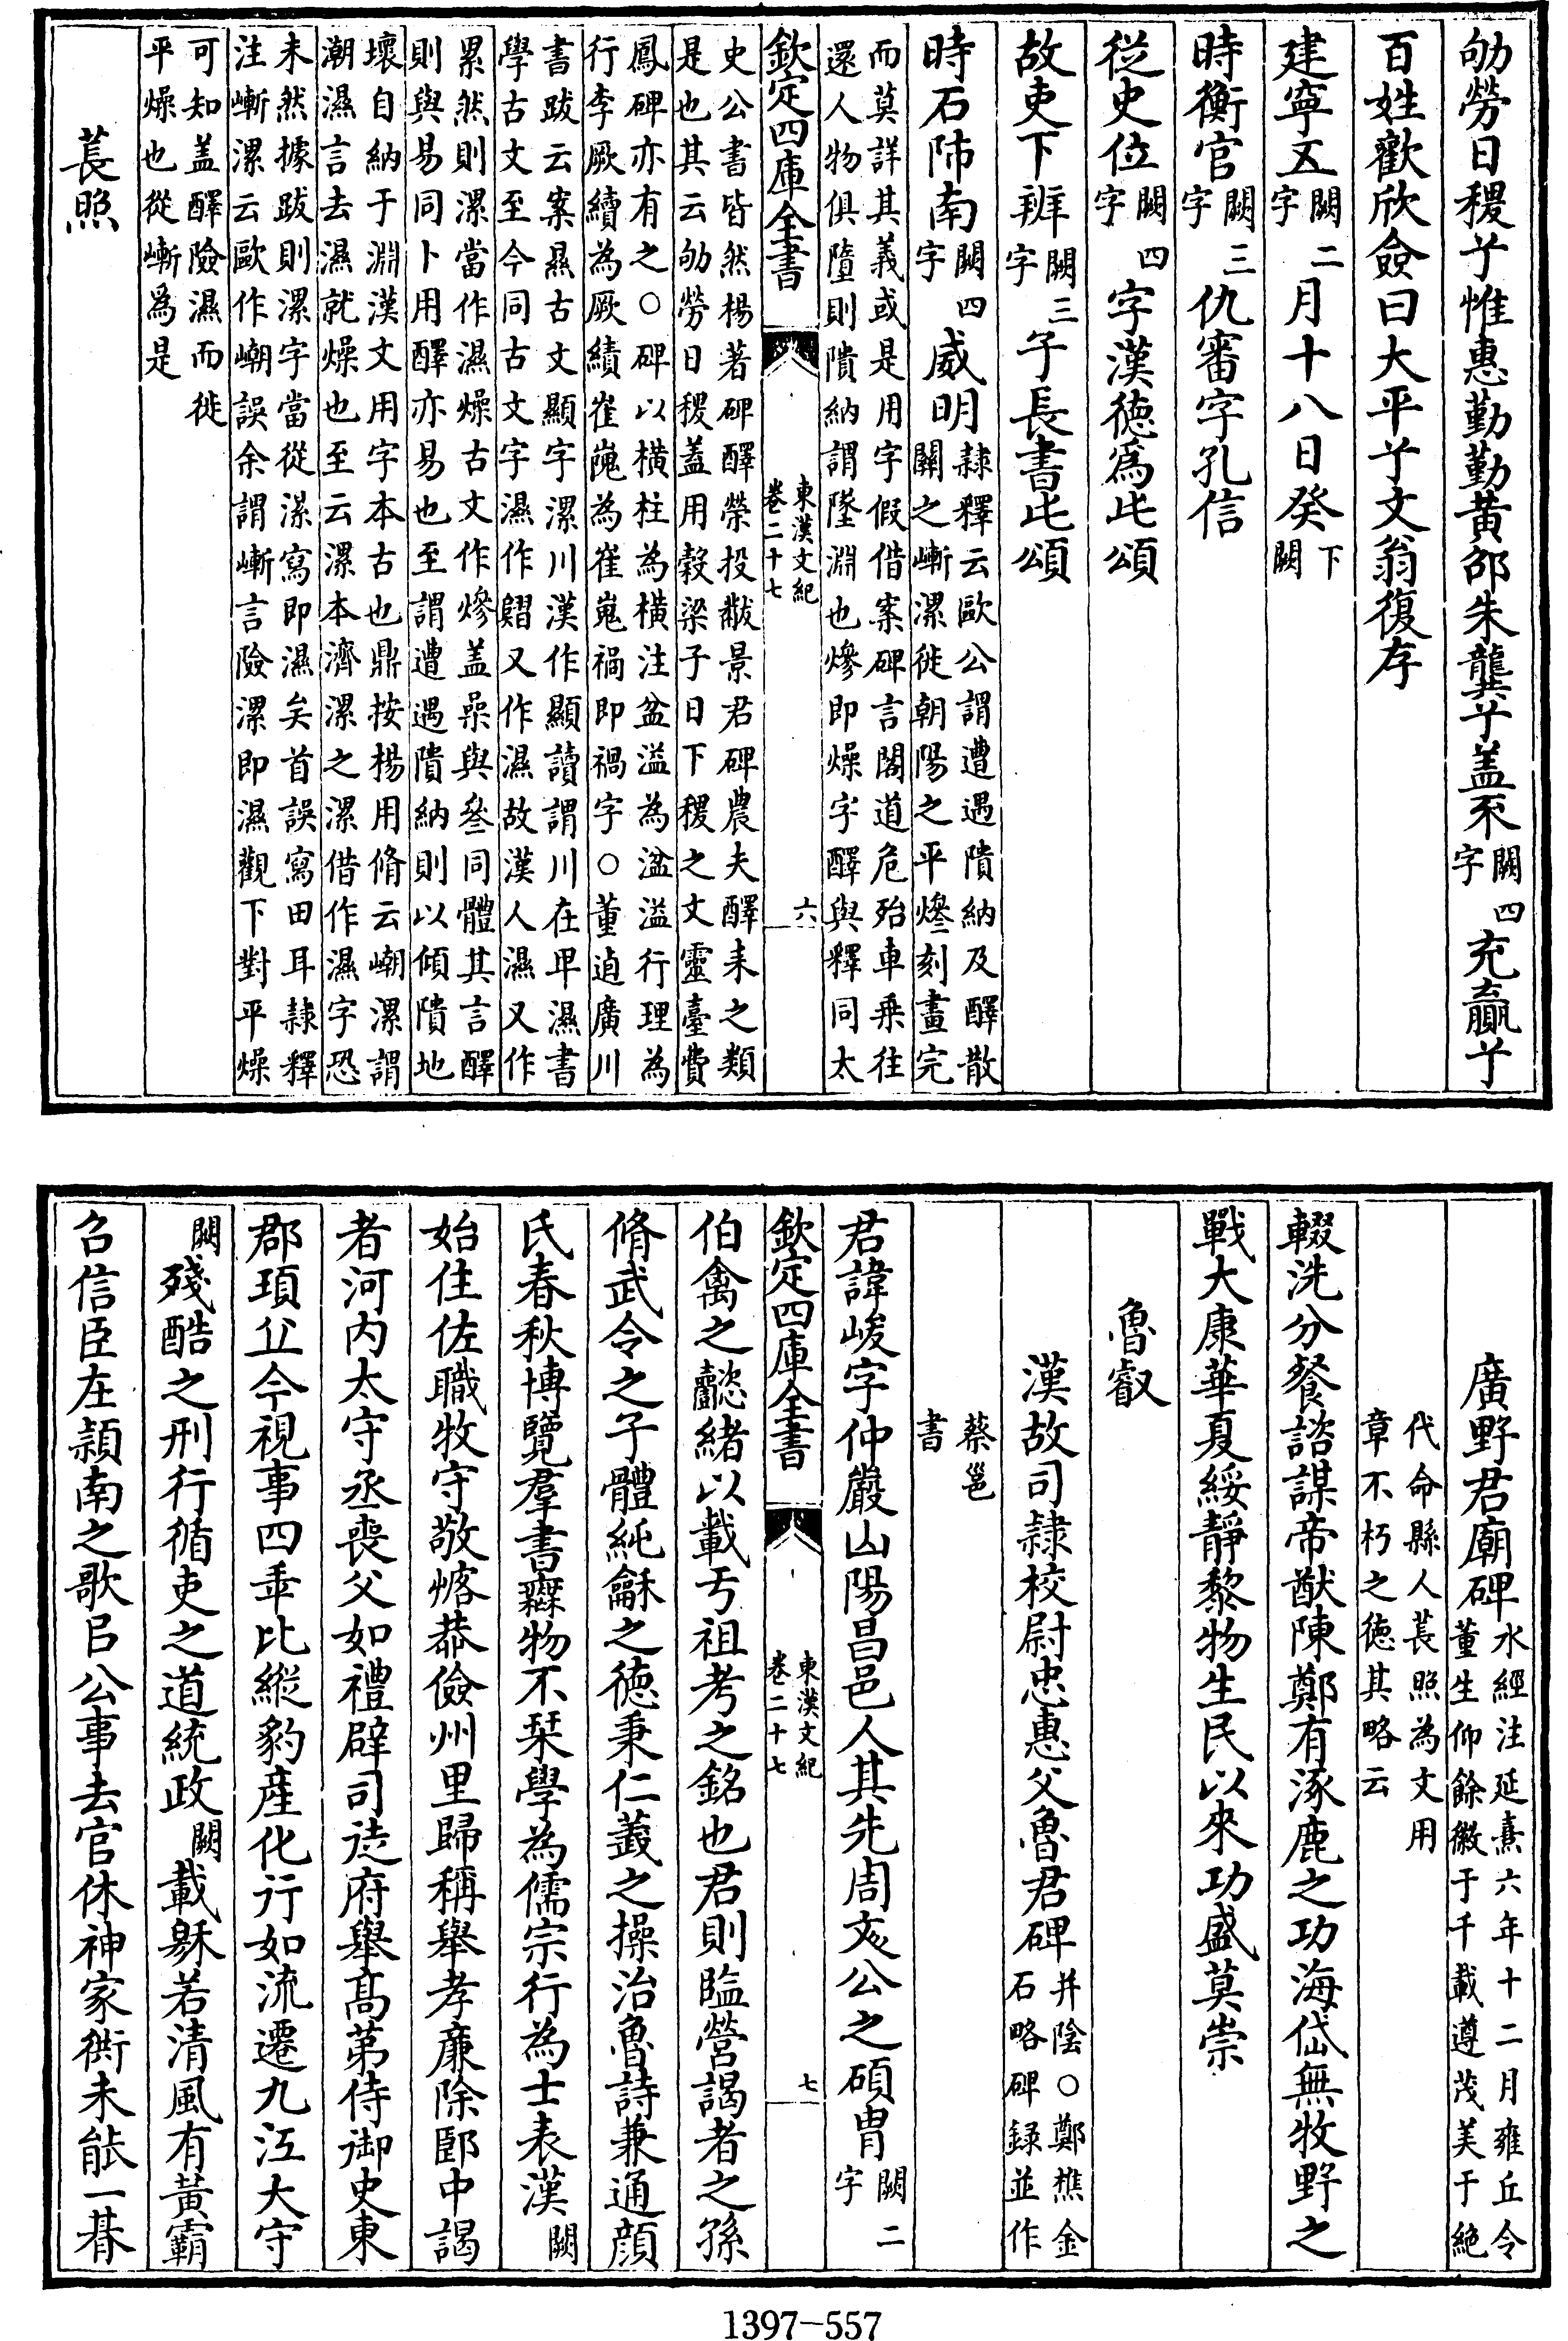 劬勞日稷兮惟惠勤勤黃邵朱龔兮盖不闕四字充贏兮
百姓歡欣僉曰大平兮文翁復存
建寧五闕二字月十八日癸下闕
時衡官闕三字仇審字孔信
從史位闕四字字漢徳為此頌
故吏下辨闕三字子長書此頌
時石師南闕四字威明隷釋云歐公謂遭遇隤納及醳散關之嶃漯徙朝陽之平燓刻畫完
而莫詳其義或是用字假借案碑言閣道危殆車乘往還人物俱墮則隤納謂墜淵也㷮即燥字醳與釋同太
欽定四庫全書 東漢文紀 卷二十七 六
史公書皆然楊著碑醳榮投黻景君碑農夫醳耒之類是也其云劬勞日稷盖用穀梁子日下稷之文靈臺費
鳳碑亦有之○碑以橫柱為橫注盆溢為湓溢行理為行李厥續為厥績崔巍為崔嵬禍即禍字○董逌廣川
書跋云案㬎古文顯字漯川漢作顯讀謂川在卑濕書學古文至今同古文字濕作㬤又作濕故漢人濕又作
累然則漯當作濕燥古文作㷮盖喿與參同體其言醳則與易同卜用醳亦易也至謂遭遇隤納則以傾隤地
壞自納于淵漢文用字本古也鼎按楊用脩云嶃漯謂潮濕言去濕就燥也至云漯本濟漯之漯借作濕字恐
未然據跋則漯字當從㵝寫即濕矣首誤寫田耳隷釋注嶃漯云歐作嘲誤余謂嶃言險漯即濕觀下對平燥
可知盖醳險濕而徙平燥也從嶃為是
萇照
廣野君廟碑水經注延熹六年十二月雍丘令董生仰餘徽于千載遵茂美于絶
代命縣人萇照為文用章不朽之徳其略云
輟洗分餐諮謀帝猷陳鄭有涿鹿之功海岱無牧野之
戰大康華夏綏靜黎物生民以來功盛莫崇
魯叡
漢故司隷校尉忠惠父魯君碑并隂○鄭樵金石略碑録並作
蔡邕書
君諱峻字仲嚴山陽昌邑人其先周文公之碩冑闕二字
欽定四庫全書 東漢文紀 卷二十七 七
伯禽之懿緒以載于祖考之銘也君則監營謁者之孫
脩武令之子體純龢之徳秉仁義之操治魯詩兼通顔
氏春秋博覽羣書無物不栞學為儒宗行為士表漢闕
始仕佐職牧守敬恪恭儉州里歸稱舉孝廉除郎中謁
者河内太守丞喪父如禮辟司徒府舉髙第侍御史東
郡頊丘令視事四年比縱豹産化行如流遷九江大守
闕殘酷之刑行循吏之道統政闕載穆若清風有黃霸
召信臣在潁南之歌㠯公事去官休神家衖未能一朞
1397—557